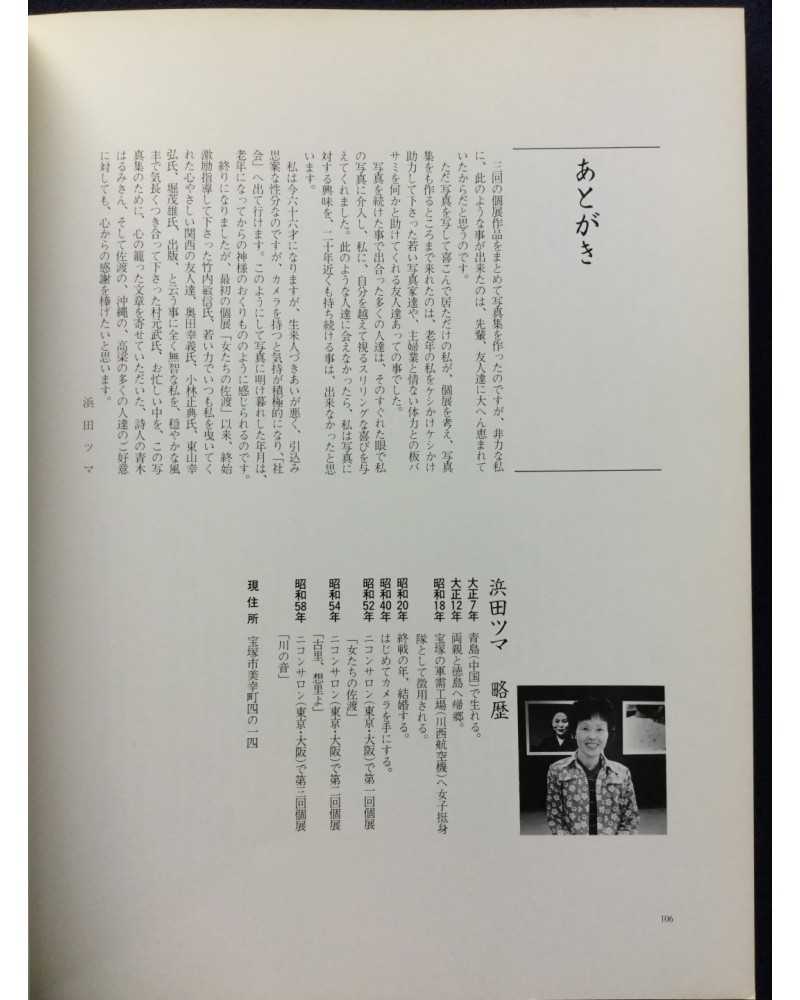 あとがき
三回の個展作品をまとめて写真集を作ったのですが、非力な私
に、此のような事が出来たのは、先輩、友人達に大へん恵まれて
いたからだと思うのです。
ただ写真を写して喜こんで居ただけの私が、個展を考え、写真
集をも作るところまで来れたのは、老年の私をケシかけケシかけ
助力して下さった若い写真家達や、主婦業と情ない体力との板バ
サミを何かと助けてくれる友人達あっての事でした。
写真を続けた事で出合った多くの人達は、そのすぐれた眼で私
の写真に介入し、私に、自分を越えて視るスリリングな喜びを与
えてくれました。此のような人達に会えなかったら、私は写真に
対する興味を、二十年近くも持ち続ける事は、出来なかったと思
います。
私は今六十六才になりますが、生来人づきあいが悪く、引込み
思案な性分なのですが、カメラを持つと気持が積極的になり、「社
会」へ出て行けます。このようにして写真に明け暮れした年月は、
老年になってからの神様のおくりもののように感じられるのです。
終りになりましたが、最初の個展「女たちの佐渡」以来、終始
激励指導して下さった竹内敏信氏、若い力でいつも私を曳いてく
れた心やさしい関西の友人達、奥田幸義氏、小林正典氏、東山幸
弘氏、堀茂雄氏、出版、と云う事に全く無智な私を、穏やかな風
丰で気長くつき合って下さった村元武氏、お忙しい中を、この写
真集のために、心の籠った文章を寄せていただいた、詩人の青木
はるみさん、そして佐渡の、沖縄の、高梁の多くの人達のご好意
に対しても、心からの感謝を捧げたいと思います。
浜田ツマ
浜田ツマ 略歴
大正7年 青島(中国)で生れる。
大正12年 両親と徳島へ帰郷。
昭和18年 宝塚の軍需工場(川西航空機)へ女子挺身
隊として徴用される。
昭和20年 終戦の年、結婚する。
昭和40年 はじめてカメラを手にする。
昭和52年 ニコンサロン(東京・大阪)で第一回個展
「女たちの佐渡」
昭和54年 ニコンサロン(東京・大阪)で第二回個展
「古里、想里よ」
昭和58年 ニコンサロン(東京・大阪)で第三回個展
「川の音」
現住所 宝塚市美幸町四の一四
106